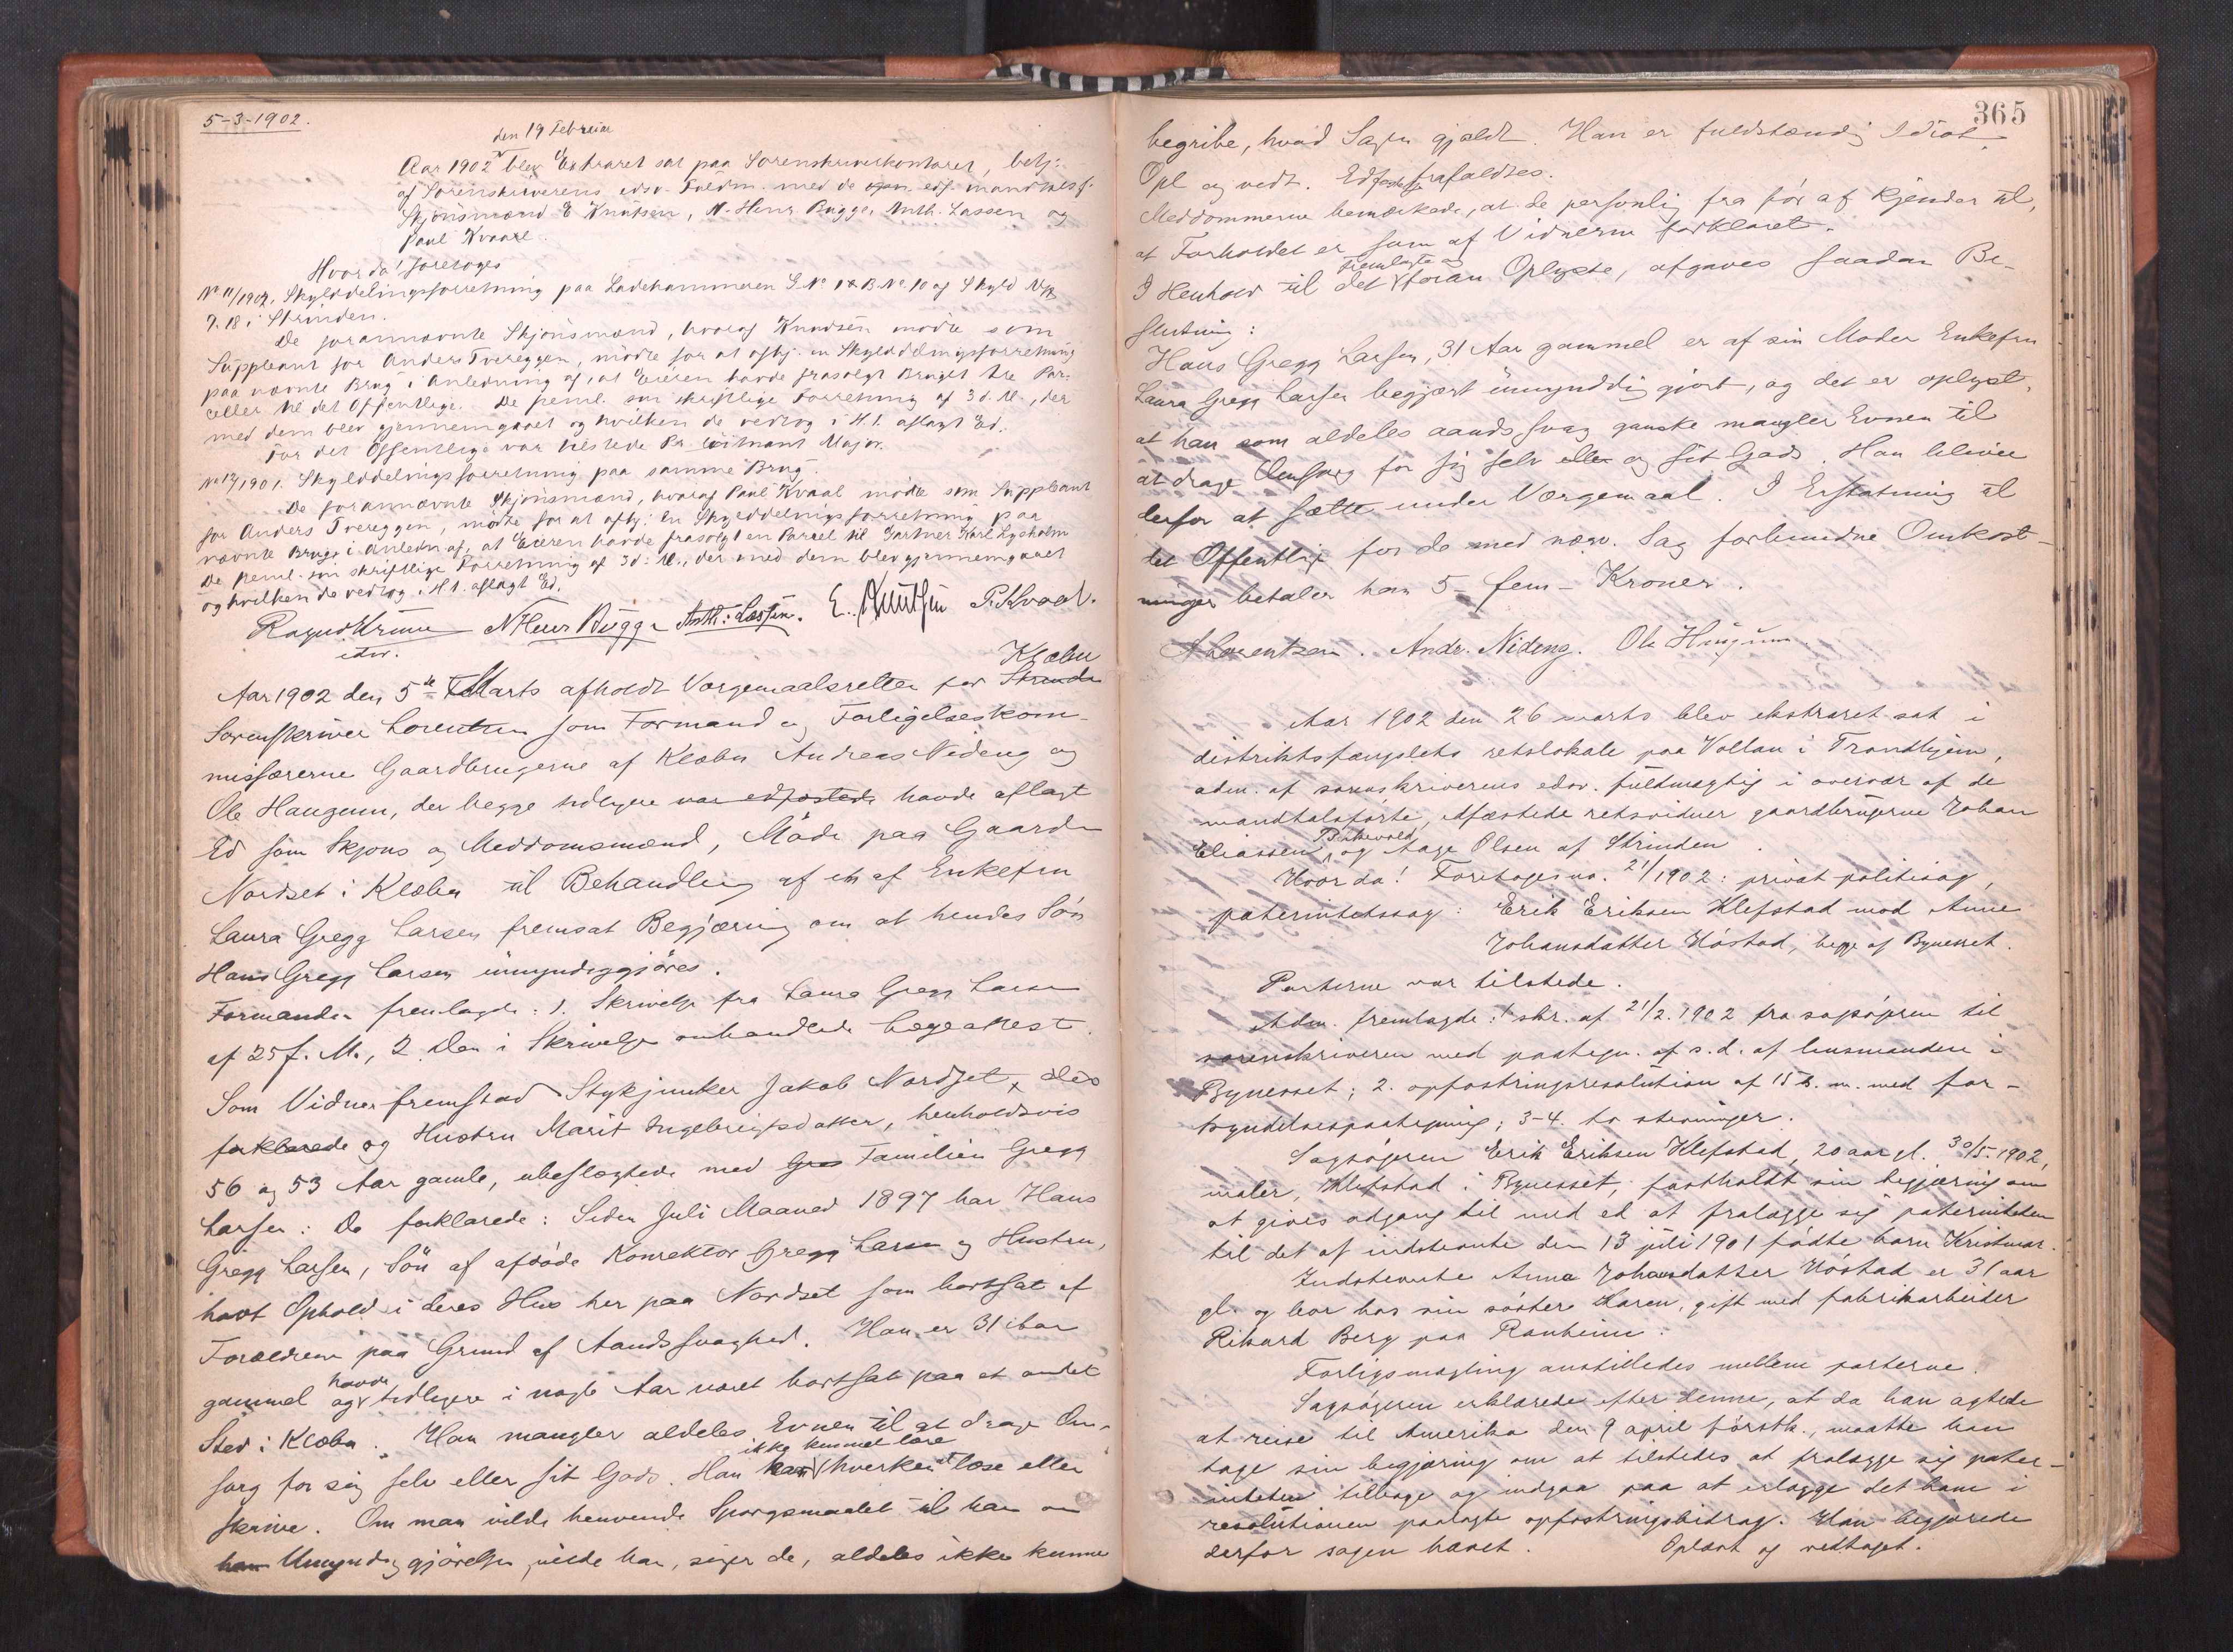 5-3-1902.
den 19 Februar
Aar 1902 blev Extraret sat paa Sorenskriverkontoret, betj:
af Sorenskriverens edsv. Fuldm. med de opn. edf. mandtalsf.
Skjönsmænd E Knutsen, N. Henr. Bugge, Anth. Lassen og
Paul Kvaal.
Hvorda! foretoges
No 11/1902, Skylddelingsforretning paa Ladehammeren G.No 1 & B.No. 10 af Skyld
9.18 i Strinden.
De forannævnte Skjönsmænd, hvoraf Knudsen mödte som
Suppleant for Anders Tvereggen, mödte for at afhj. en Skylddelingsforretning
paa nævnte Brug i Anledning af, at Eieren havde frasolgt Bruget tre Par-
celler til det Offentlige. De peml. sin skriftlige Forretning af 3 d. M., der
med dem blev gjennemgaaet og hvilken de vedtog i H. t. aflagt Ed.
For det Offentlige var tilstede Pr. Löitnant Major.
No 12/1901. Skylddelingsforretning paa samme Brug.
De forannævnte Skjönsmænd, hvoraf Paul Kvaal mödte som Suppleant
for Anders Tvereggen, mödte for at afhj: en Skylddelingsforretning paa
nævnte Brug i Anledn af, at Eieren havde frasolgt en Parcel til Gartner Karl Lysholm
De peml. sin skriftlige Forretning af 3 d: M., der med dem blev gjennemgaaet
og hvilken de vedtog i H t. aflagt Ed.
N Henr Bugge Anth: Lassen. E. Knutsen P. Kvaal.
edsv.
Klæbu
Aar 1902 den 5te Marts afholdt Værgemaalsretten for Strinda
Sorenskriver Lorentzen som Formand og Forligelseskom-
missærerne Gaardbrugerne af Klæbu Andreas Nideng og
Ole Haugum, der begge tidligere var edfæstede havde aflagt
Ed som Skjöns og Meddomsmænd, Möde paa Gaarden
Nordset i Klæbu til Behandling af en af Enkefru
Laura Gregg Larsen fremsat Begjæring om at hendes Sön
Hans Gregg Larsen umyndiggjöres.
Formanden fremlagde: 1. Skrivelse fra Laura Gregg Larsen
af 25 f. M., 2. den i Skrivelse omhandlede Lægeattest.
Som Vidner fremstod Stykjunker Jakob Nordset, der
forklarede og Hustru Marit Ingebrigtsdatter, henholdsvis
56 og 53 Aar gamle, ubeslægtede med Gres Familien Gregg
Larsen: De forklarede: Siden Juli Maaned 1897 har Hans
Gregg Larsen, Sön af afdöde Konrektor Gregg Larsen og Hustru,
havt Ophold i deres Hus her paa Nordset som bortsat af
Forældrene paa Grund af Aandssvaghed. Han er 31 Aar
havde
gammel og tidligere i nogle Aar været bortsat paa et andet
Sted i Klæbu. Han mangler aldeles Evnen til at drage Om-
ikke kunnet lære
sorg for sig selv eller sit Gods. Han har hverken læse eller
skrive. Om man vilde henvende Spørgsmaalet til ham om
ham Umyndiggjörelsen, vilde han, siger de, aldeles ikke kunne
365
begribe, hvad Sagen gjældt. Han er fuldstændig Idiot.
Opl og vedt. Edfæstelse frafaldtes.
Meddommerne bemærkede, at de personlig fra för af kjender til,
at Forholdet er som af Vidnerne forklaret.
Fremlagte og
I Henhold til det foran Oplyste, afgaves saadan Be-
slutning:
Hans Gregg Larsen, 31 Aar gammel er af sin Moder Enkefru
Laura Gregg Larsen begjært umyndiggjort, og det er oplyst,
at han som aldeles aandssvag ganske mangler Evnen til
at drage Omsorg for sig selv eller og sit Gods. Han bliver
derfor at sætte under Værgemaal. I Erstatning til
det Offentlige for de med nærv. Sag forbundne Omkost-
ninger betaler han 5 - fem - Kroner.
A Lorentzen. Andr. Nideng. Ole Haugum
Aar 1902 den 26 marts blev ekstraret sat i
distriktsfængslets retslokale paa Vollan i Trondhjem,
adm. af sorenskriverens edsv. fuldmægtig i overvær af de
mandtalsförte, edfæstede retsvidner gaardbrugerne Johan
Eliassen og Aage Olsen af Strinden.
Hvor da! Foretoges no. 21/1902: privat politisag,
paternitetssag: Erik Eriksen Klefstad mod Anne
Johansdatter Höstad, begge af Bynesset.
Parterne var tilstede.
Adm. fremlagde: 1 skr. af 21/2. 1902 fra sagsögeren til
sorenskriveren med paategn. af s.d. af lensmanden i
Bynesset; 2. opfostringsresolution af 15 f. m. med for-
kyndelsespaategning; 3-4. to stevninger.
Sagsögeren Erik Eriksen Klefstad, 20 aar gl. 30/5-1902,
maler, Klefstad i Bynesset, fastholdt sin begjæring om
at gives adgang til med ed at fralægge sig paterniteten
til det af indstevnte den 13 juli 1901 födte barn Kristmar.
Indstevnte Anna Johansdatter Höstad er 31 aar
gl. og bor hos sin söster Karen, gift med fabrikarbeider
Rikard Berg paa Ranheim.
Forligsmægling anstilledes mellem parterne.
Sagsögeren erklærede efter denne, at da han agtede
at reise til Amerika den 9 april förstk., maatte han
tage sin begjæring om at tilstedes at fralægge sig pater-
niteten tilbage og indgaa paa at erlægge det ham i
resolutionen paalagte opfostringsbidrag. Han begjærede
derfor sagen hævet. Oplæst og vedtaget.